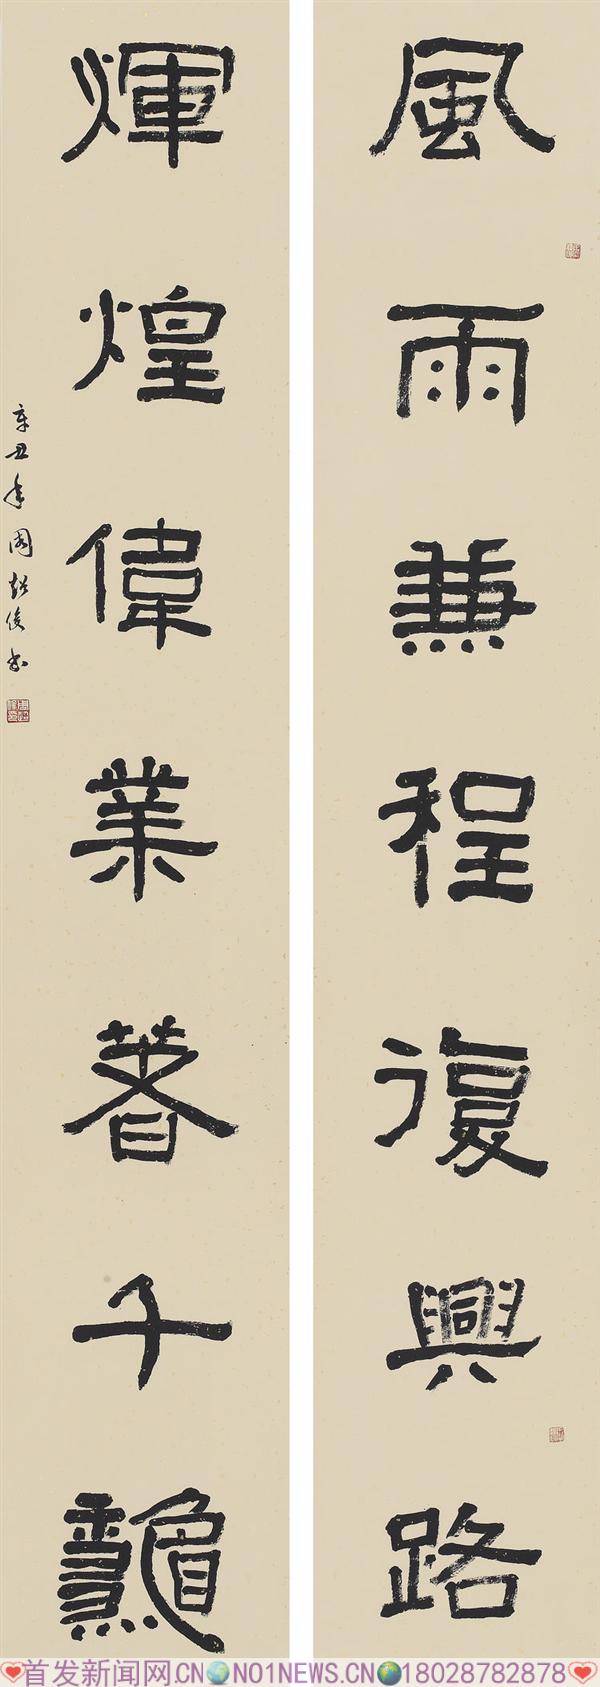 風雨兼程復興路
煇煌偉業著千龝
辛丑年周俊书
首发新闻网.CN NO1NEWS.CN 18028782878